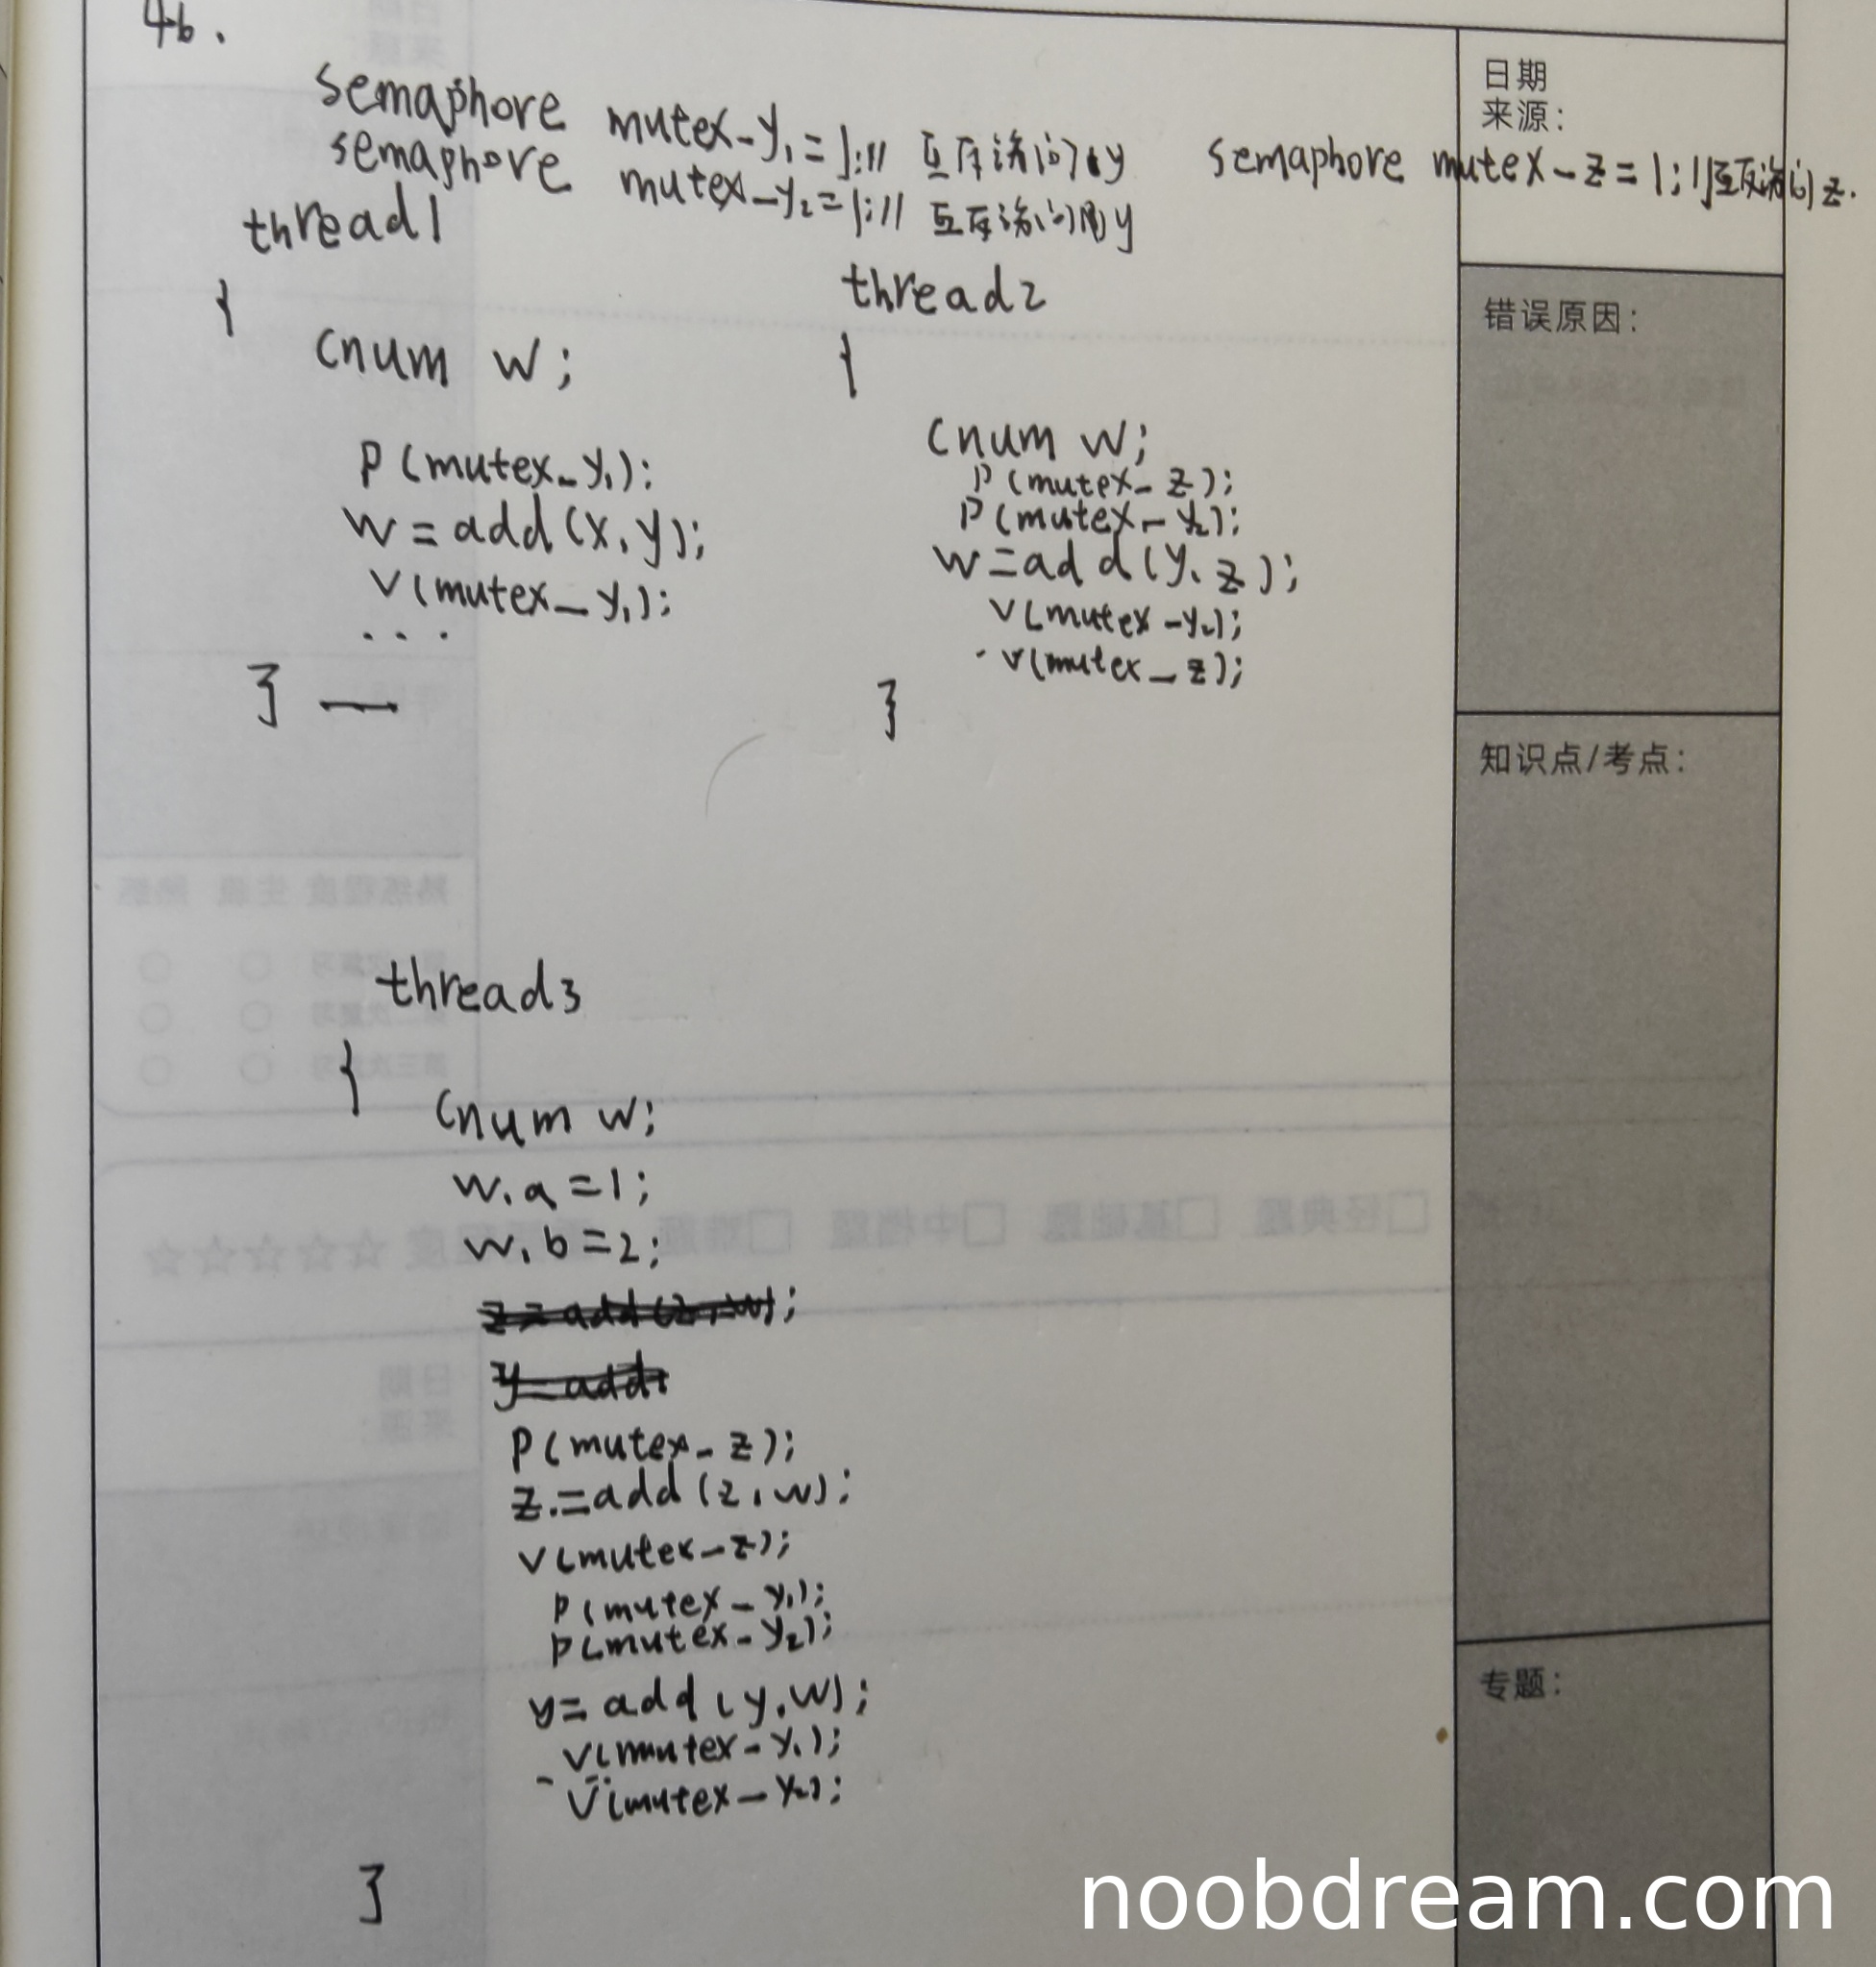 46.
semaphore mutex-y1=1;// 互斥访问y
semaphore mutex-z=1;//互斥访问z.
semaphore mutex-y2=1;// 互斥访问y
thread1
{
Cnum w;
P(mutex-y1);
w=add(x,y);
V(mutex-y1);
...
}
thread2
{
Cnum w;
P(mutex-z);
P(mutex-y2);
w=add(y,z);
V(mutex-y2);
V(mutex-z);
}
thread3
{
Cnum w;
w.a=1;
w.b=2;
z=add(z,w);
y=add
P(mutex-z);
z=add(z,w);
V(mutex-z);
P(mutex-y1);
P(mutex-y2);
y=add(y,w);
V(mutex-y1);
V(mutex-y2);
}
日期
来源:
错误原因:
知识点/考点:
专题:
noobdream.com